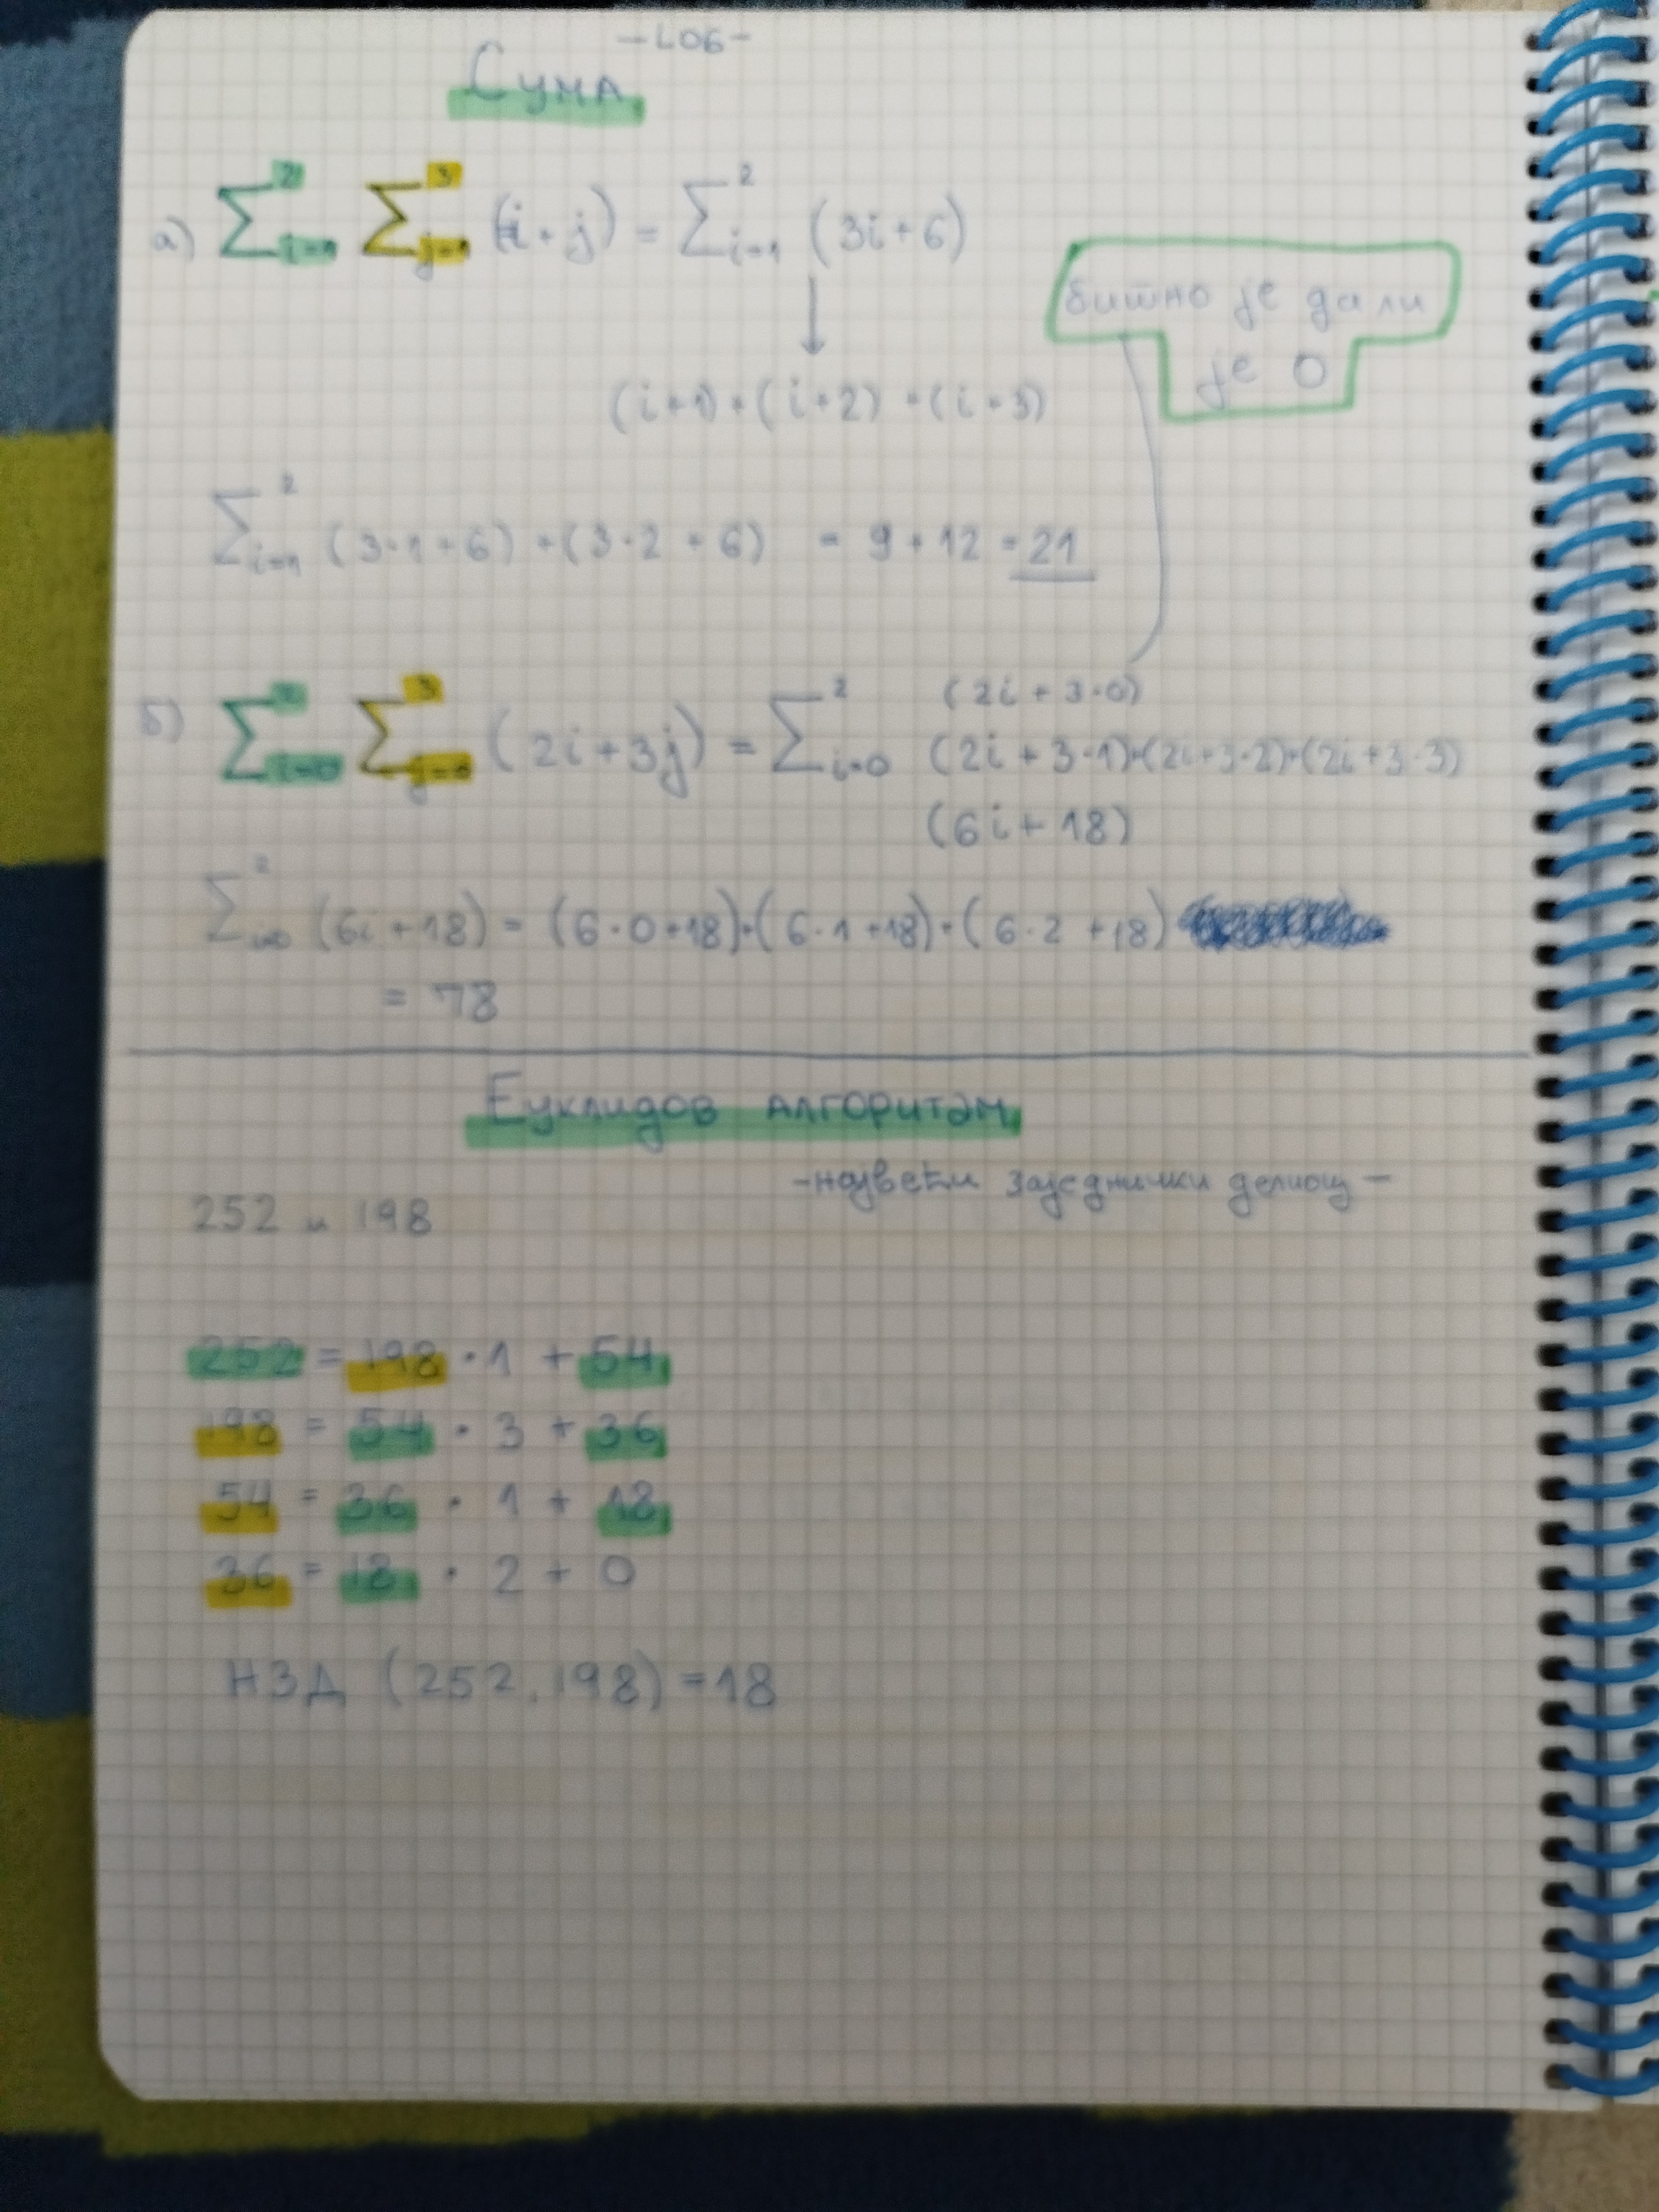 -L06-
Сума
а) ∑²i=1 ∑³j=1 (i+j) = ∑²i=1 (3i+6)
битно је да ли
је 0
(i+1)+(i+2)+(i+3)
∑²i=1 (3·1+6)+(3·2+6) = 9+12=21
(2i+3·0)
б) ∑²i=0 ∑³j=0 (2i+3j) = ∑²i=0 (2i+3·1)+(2i+3·2)+(2i+3·3)
(6i+18)
∑²i=0 (6i+18) = (6·0+18)+(6·1+18)+(6·2+18)
= 78
Еуклидов алгоритам
-највећи заједнички делиоц-
252 и 198
252 = 198 · 1 + 54
198 = 54 · 3 + 36
54 = 36 · 1 + 18
36 = 18 · 2 + 0
НЗД (252, 198) = 18